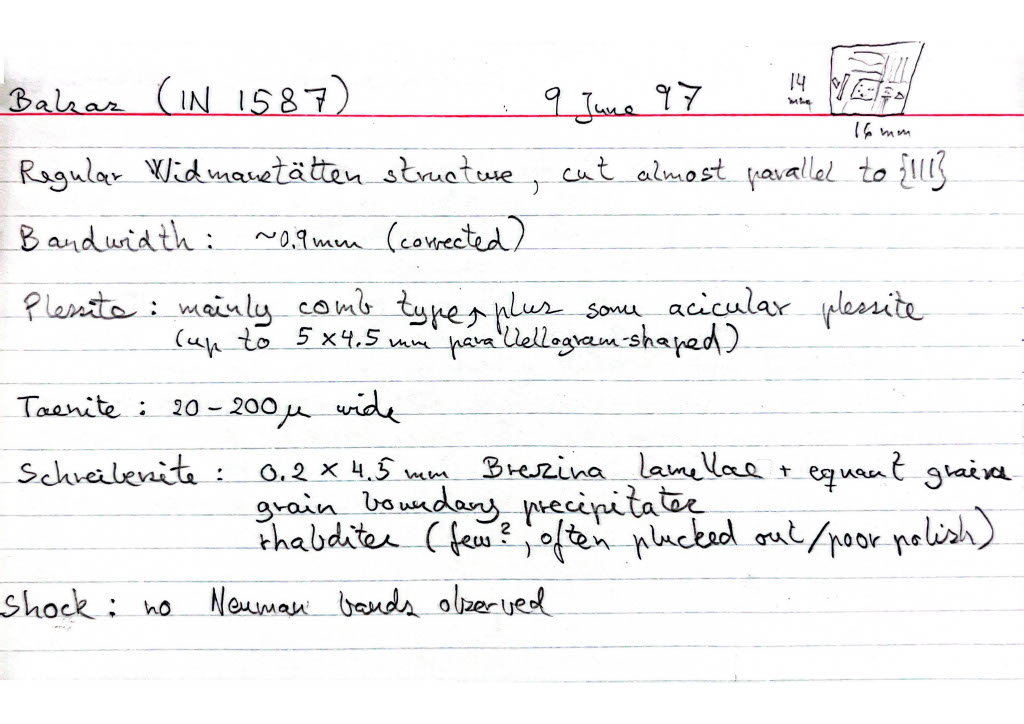 Balsas (IN 1587) 9 June 97 14 mm
16 mm
Regular Widmanstätten structure, cut almost parallel to {111}
Bandwidth : ~0.9mm (corrected)
Plessite : mainly comb type, plus some acicular plessite
(up to 5 x 4.5 mm parallellogram-shaped)
Taenite : 20 - 200 µ wide
Schreibersite : 0.2 x 4.5 mm Brezina lamellae + equant grains
grain boundary precipitates
rhabdites (few?, often plucked out/poor polish)
Shock : no Neuman bands observed